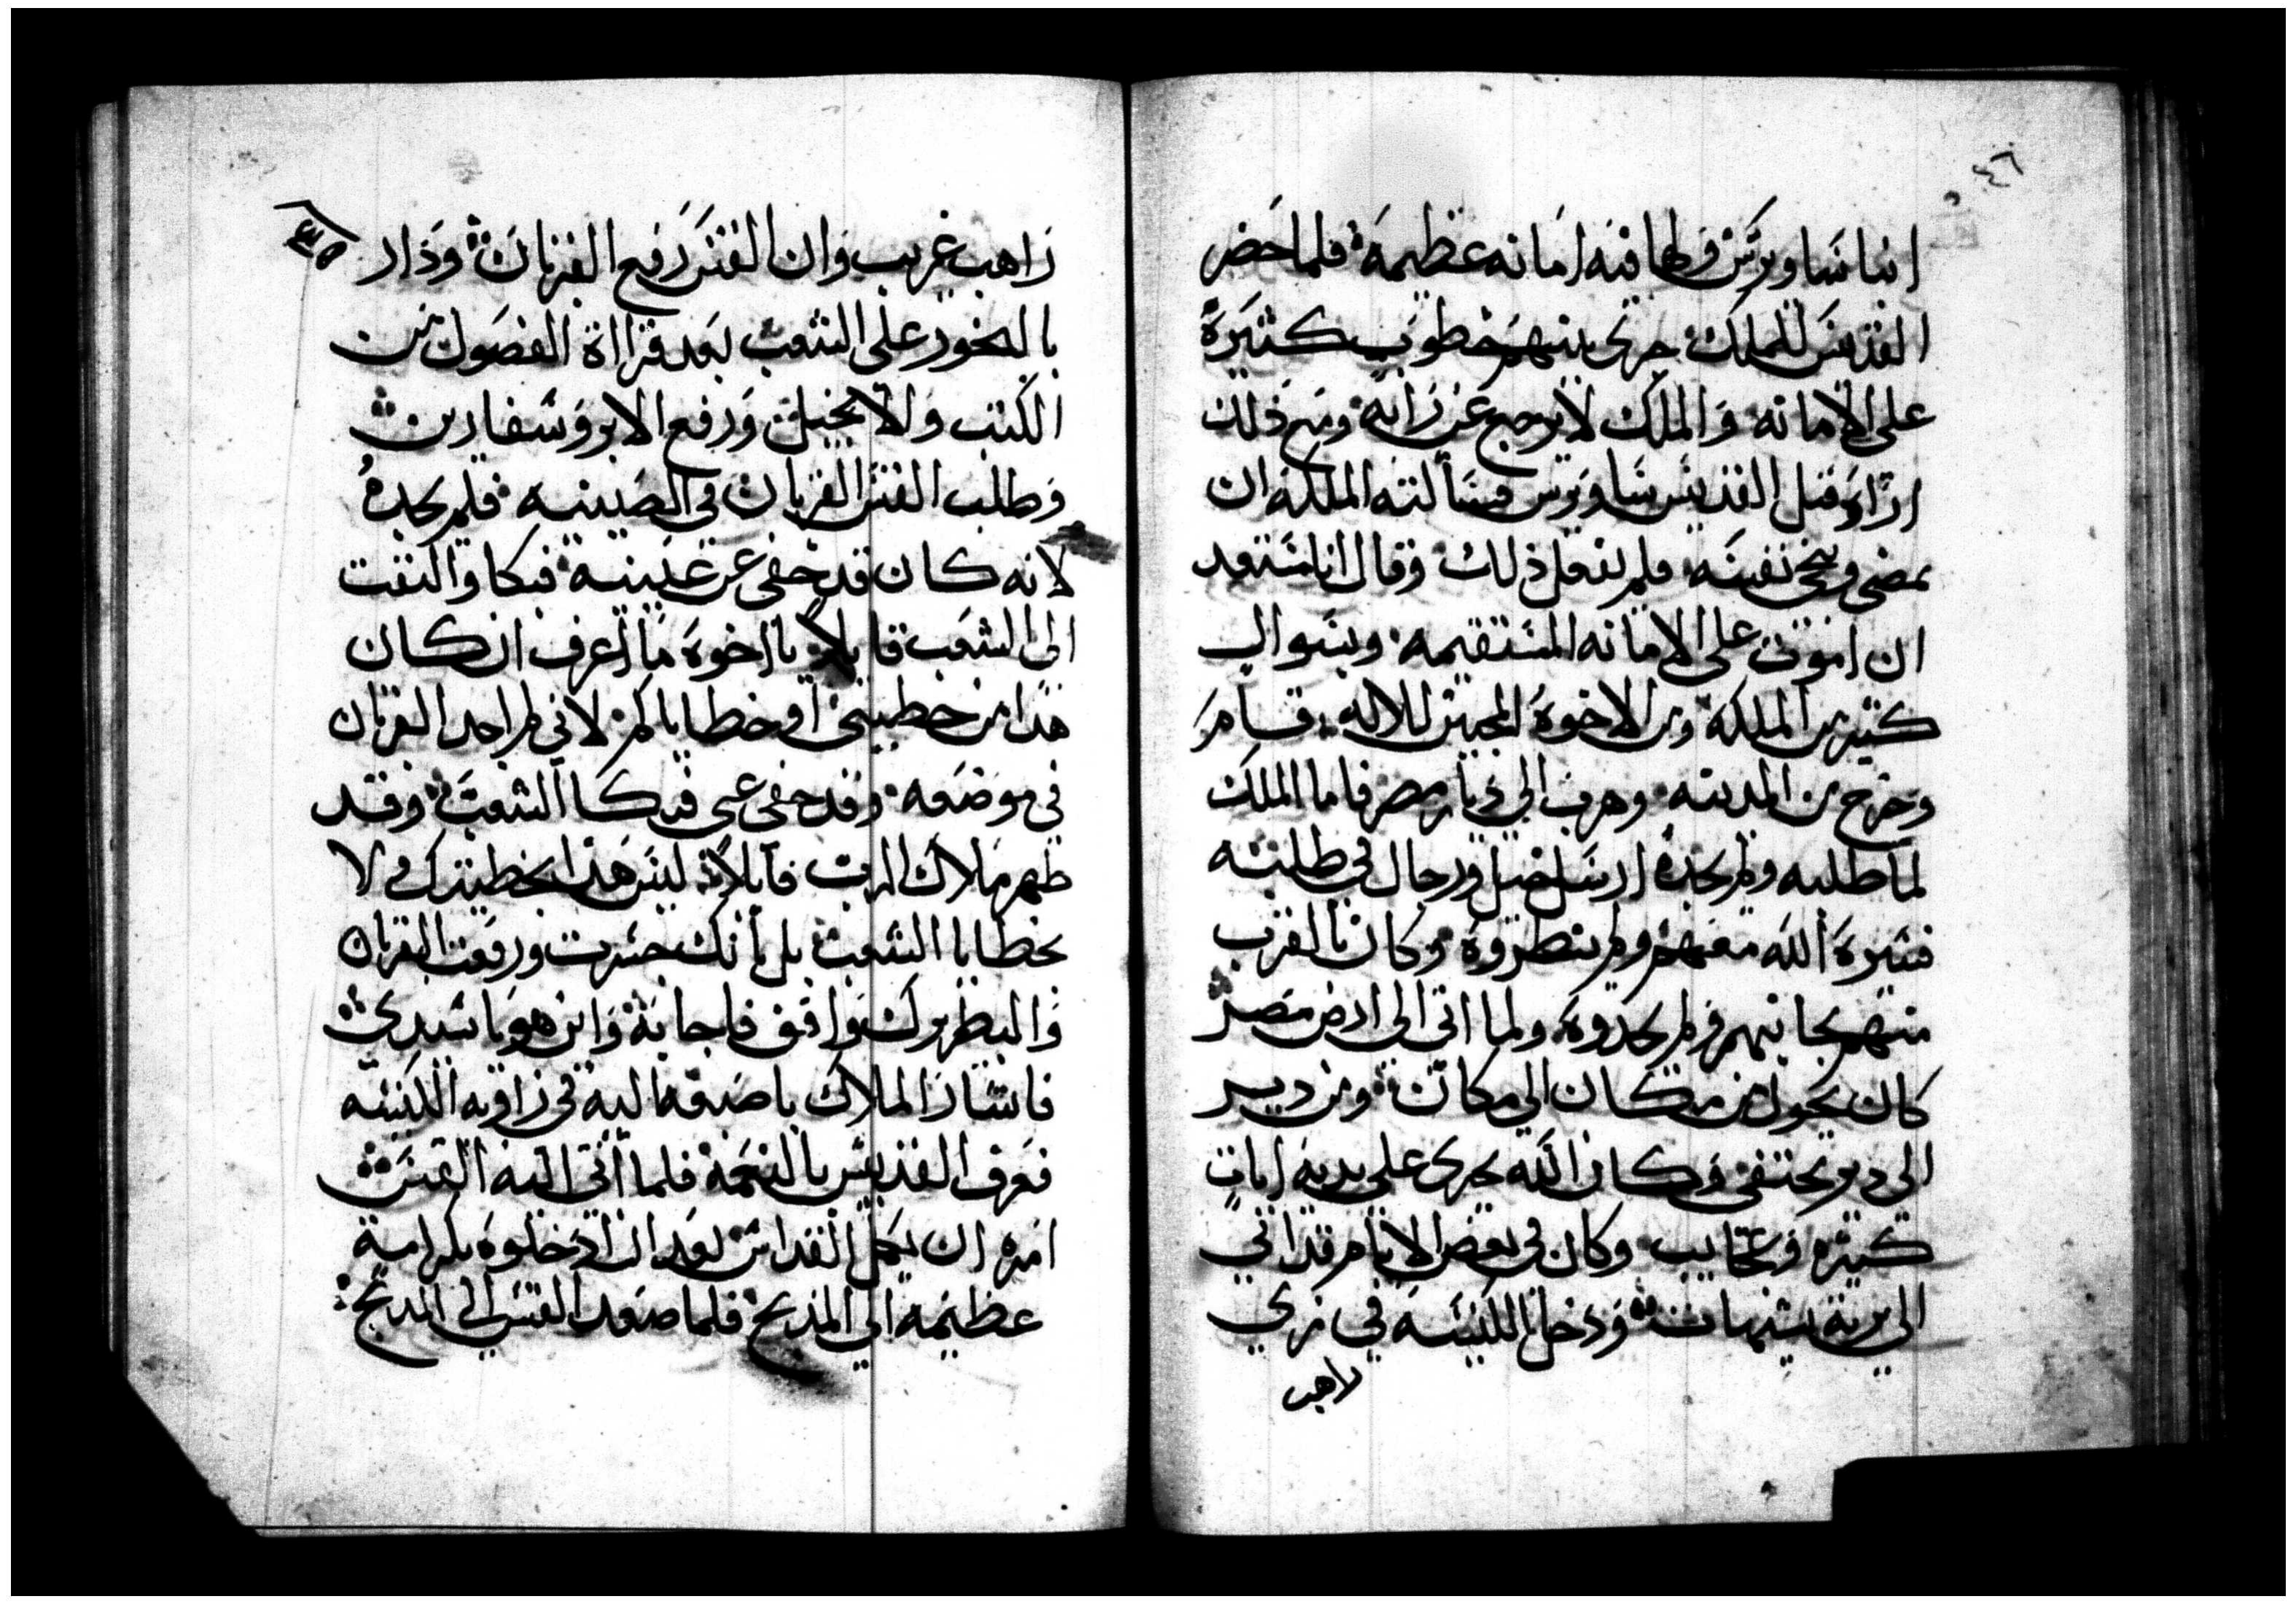 ٤٦
انبا ساويرس ولها فيه امانه عظيمة فلما حضر
القديس للملك جرى بينهم خطوب كثيرة
على الامانه والملك لا يرجع عن رايه ومع ذلك
اراد قتل القديس ساويرس فسألته الملكة ان
يمضي وينجي نفسه فلم يفعل ذلك وقال انا مستعد
ان اموت على الامانه المستقيمه وبسوال
كثير من الملكة ومن الاخوة المحبين للاله قام
وخرج من المدينه وهرب الى ديار مصر فاما الملك
لما طلبه ولم يجده ارسل خيل ورجال في طلبته
فستره الله معهم ولم ينظروه وكان بالقرب
منهم بجانبهم ولم يجدوه ولما اتى الى ارض مصر
كان يحول من مكان الى مكان ومن دير
الى دير يختفى وكان الله يجرى على يديه ايات
كثيره وعجايب وكان في بعض الايام قد اتي
الى برية شيهات ودخل الكنيسه في زي
راهب
راهب غريب وان القس رفع القربان ودار
بالبخور على الشعب بعد قرااة الفصول من
الكتب والانجيل ورفع الابروسفارين
وطلب القس القربان في الصينيه فلم يجده
لانه كان قد خفى عن عينيه فبكا والتفت
الى الشعب قايلا يا اخوة ما اعرف ان كان
هذا من خطيتى او خطاياكم لاني لم اجد القربان
في موضعه وقد خفى عنى فبكا الشعب وقد
ظهر ملاك الرب قايلا ليس هذا بخطيتك ولا
بخطايا الشعب بل بانك جسرت ورفعت القربان
والبطريرك واقف فاجابه واين هو يا سيدي
فاشار الملاك باصبعه اليه في زاويه الكنيسه
فعرف القديس بالنعمة فلما أتى اليه القس
امره ان يكمل القداس بعد ان ادخلوه بكرامية
عظيمه الي المذبح فلما صعد القس الى المذبح